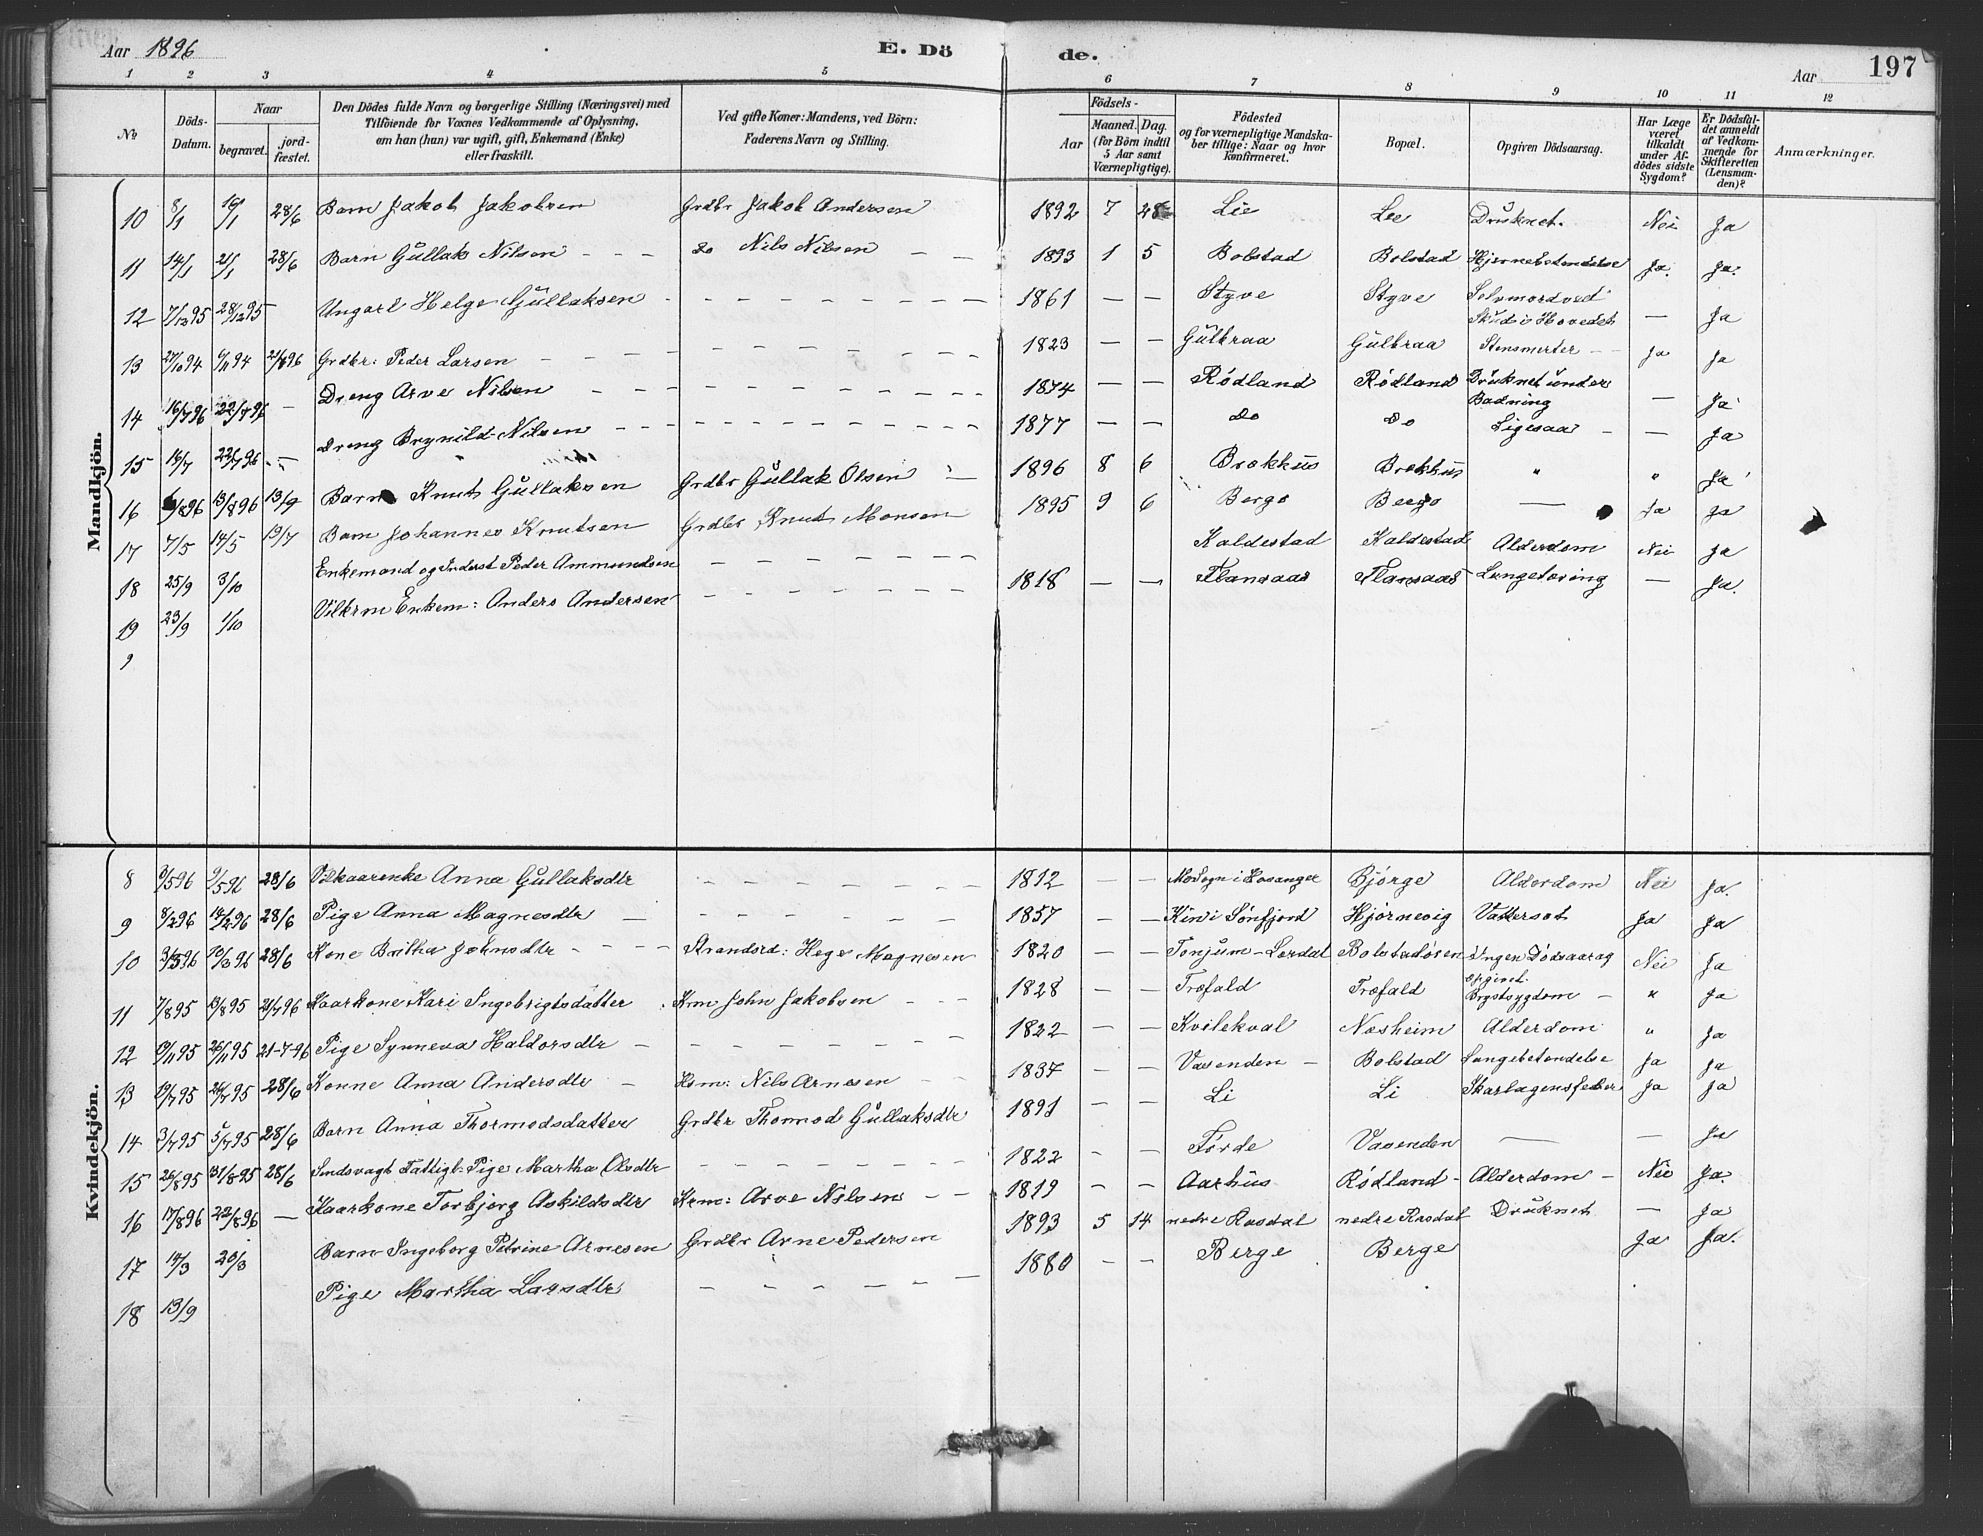 Aar 1896 E. Dö de. Aar 197
1 2 3 4 5 6 7 8 9 10 11 12
№ Döds-Datum. Naar begravet. jord-fæstet. Den Dödes fulde Navn og borgerlige Stilling (Næringsvei) med Tilföiende for Voxnes Vedkommende af Oplysning, om han (hun) var ugift, gift, Enkemand (Enke) eller fraskilt. Ved gifte Koner: Mandens, ved Börn: Faderens Navn og Stilling. Födsels- Aar Maaned. Dag. (for Börn indtil 5 Aar samt Værnepligtige). Födested og for værnepligtige Mandska-ber tillige: Naar og hvor konfirmeret. Bopæl. Opgiven Dödsaarsag. Har Læge været tilkaldt under Af-dödes sidste Sygdom? Er Dödsfal-det anmeldt af Vedkom-mende for Skifteretten (Lensman-den)? Anmærkninger.
Mandkjön.
10 8/1 16/1 28/6 Barn Jakob Jakobsen Grdbr Jakob Andersen 1892 7 28 Lie Lie Druknet. Nei Ja
11 14/1 21/1 28/6 Barn Gullak Nilsen - - - do Nils Nilsen - - 1893 1 5 Bolstad Bolstad Hjernebetændelse Ja. Ja.
12 7/12 95 28/12 95 Ungarl Helge Gullaksen - - 1861 - - Styve Styve Selvmord ved Skud i Hovedet - Ja
13 27/10 94 6/11 94 21/7 96 Grdbr: Peder Larsen - - 1823 - - Gulbraa Gulbraa Stensmerter - - Ja Ja
14 16/7 96 22/7 96 - Dreng Arve Nilsen - - 1874 - - Rödland Rödland Druknet under Badning - Ja
15 16/7 22/7 96 - Dreng Brynild Nilsen - - - 1877 - - Do Do Ligesaa - - Ja
16 6/8 96 13/8 96 13/9 Barn Knut Gullaksen Grdbr Gullak Olsen - 1896 8 6 Brækhus Brækhus " " Ja
17 7/5 14/5 19/7 Barn Johannes Knutsen Grdbr Knut Monsen 1895 9 6 Berge Berge - Ja Ja
18 25/9 3/10 Enkemand og Inderst Peder Ammundsen - - Kaldestad Kaldestad Alderdom Nei Ja
19 23/9 1/10 Vilkrm Enkem: Anders Andersen - - 1818 - - Flansaas Flansaas Lungetæring - Ja.
9
Kvindekjön.
8 3/5 96 9/5 96 28/6 Vilkaarenke Anna Gullaksdtr - - 1812 - - Modogn i Hosanger Bjørge Alderdom Nei Ja.
9 8/2 96 14/2 96 28/6 Pige Anna Magnesdtr - - 1857 - - Kin i Sönfjord Hjörnevig Vattersot Ja Ja
10 3/3 96 10/3 96 28/6 Kone Britha Johnsdtr - - Strandsd: Hege Magnesen 1820 - - Tonjum - Lærdal Bolstadøren Ingen Dödsaarsag opgivet Nei Ja
11 7/8 95 13/8 95 21/7 96 Kaarkone Kari Ingebrigtsdatter Krm John Jakobsen - - 1828 - - Træfald Træfald Brystsygdom - " Ja
12 19/11 95 26/11 95 21-7-96 Pige Synneva Haldorsdtr - - 1822 - - Kvilekval Næsheim Alderdom " Ja
13 19/7 95 26/7 95 28/6 Konne Anna Andersdtr - Hsm: Nils Arnesen - - 1837 - - Vasenden - Bolstad Lungebetændelse Ja Ja
14 3/7 95 5/7 95 28/6 Barn Anna Thormodsdatter Grdbr Thomod Gullaksdtr 1891 - - Li Li Skarlagensfeber Ja Ja
15 26/8 95 31/8 95 28/6 Sindsvagt Fattigl. Pige Martha Olsdtr - - 1822 - - Förde Vasenden - - Ja
16 17/8 96 22/8 96 - Kaarkone Torbjørg Askildsdtr Krm: Arve Nilsen - - 1819 - - Aarhus Rödland - Alderdom - Nei Ja.
17 14/3 20/3 Barn Ingeborg Petrine Arnesen Grdbr Arne Pedersen 1893 5 14 nedre Rasdal nedre Rasdal Druknet - Ja
18 13/9 Pige Martha Larsdtr - - 1880 - - Berge Berge Ja Ja.